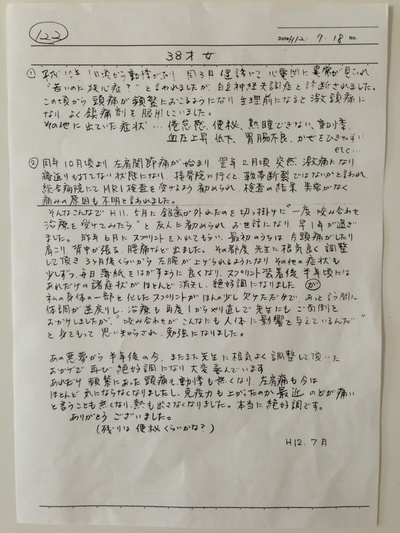 122
Date H12. 7. 18 No.
38才 女
① 平成10年1月頃から動悸がし 同3月健診にて心電図に異常が見られ
"若いのに狭心症?"と言われましたが、自律神経失調症と診断されました。
この頃から頭痛が頻繁におこるようになり生理前になると激頭痛に
なり よく鎮痛剤を服用していました。
その他に出ていた症状…倦怠感、便秘、熟睡できない、動悸、
血圧上昇 低下、胃腸不良、かぜをひきやすい
etc…
② 同年10月頃より左肩関節痛が始まり 翌年2月頃 突然 激痛になり
寝返りも打てない状態になり、接骨院に行くと軟骨断裂ではないかと言われ
総合病院にてMRI検査を受けるよう勧められ、検査の結果 異常がなく
痛みの原因も不明と言われました。
そんなこんなでH11.5月に銀歯が外れたのを切っ掛けに"一度咬み合わせ
治療を受けてみたら"と友人に勧められ お世話になり 早1年が過ぎ
ました。昨年6月にスプリントを入れてもらい、最初のうちは片頭痛がしたり
肩こり、背中が張る、腰痛など出ました。その都度 先生に根気良く調整
して頂き3ヶ月後くらいから左腕が上げられるようになり その他の症状も
少しずつ、毎日薄紙をはがすように良くなり、スプリント装着後半年頃には
あれだけの諸症状がほとんど消失し、絶好調になりました が
私の身体の一部と化したスプリントがほんの少し欠けただけで あっという間に
体調が逆戻りし、治療も再度1からやり直しで先生にもご面倒を
おかけしましたが、"咬み合せがこんなにも人体に影響を与えているんだ"
と身をもって思い知らされ、勉強になりました。
あの悪夢から半年後の今、またまた先生に根気よく調整して頂いた
おかげで 再び絶好調になり大変喜んでいます
あれだけ頻繁にあった頭痛も動悸も無くなり、左肩痛も今は
ほとんど気にならなくなりましたし、免疫力も上がったのか最近のどが痛い
と言うことも無くなり、熱も出さなくなりました。本当に絶好調です。
ありがとうございました。
(残りは便秘くらいかな?)
H12.7月